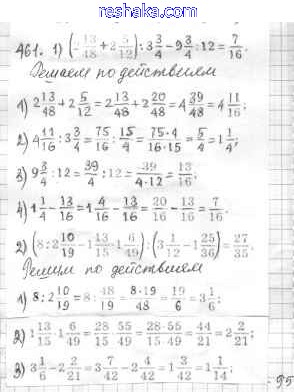 reshaka.com
461. 1) (2 13/48 + 2 5/12) : 3 3/4 - 9 3/4 : 12 = 7/16.
Решаем по действиям
1) 2 13/48 + 2 5/12 = 2 13/48 + 2 20/48 = 4 39/48 = 4 11/16;
2) 4 11/16 : 3 3/4 = 75/16 : 15/4 = 75·4/16·15 = 5/4 = 1 1/4;
3) 9 3/4 : 12 = 39/4 : 12 = 39/4·12 = 13/16;
4) 1 1/4 - 13/16 = 1 4/16 - 13/16 = 20/16 - 13/16 = 7/16.
2) (8 : 2 10/19 - 1 13/15 · 1 6/49) : (3 1/12 - 1 25/36) = 27/35.
Решим по действиям
1) 8 : 2 10/19 = 8 : 48/19 = 8·19/48 = 19/6 = 3 1/6;
2) 1 13/15 · 1 6/49 = 28/15 · 55/49 = 28·55/15·49 = 44/21 = 2 2/21;
3) 3 1/6 - 2 2/21 = 3 7/42 - 2 4/42 = 1 3/42 = 1 1/14;
95